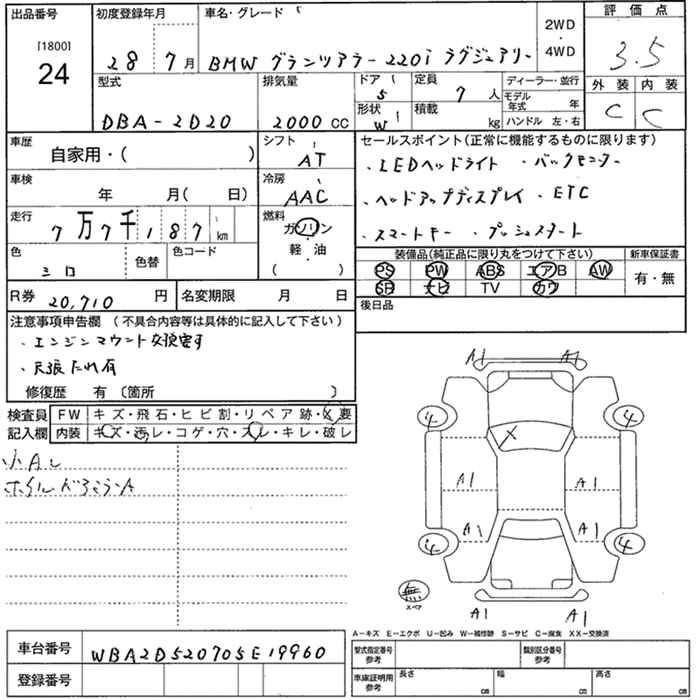 出品番号 [1800] 24
初度登録年月 28 7月
車名・グレード BMW グランツアラー 220i ラグジュアリー
2WD・4WD
評価点 3.5
型式 DBA-2D20
排気量 2000 CC
ドア 5
形状 W
定員 7 人
積載 kg
ディーラー・並行
モデル年式 年
ハンドル 左・右
外装 C
内装 C
車歴 自家用・( )
シフト AT
車検 年 月( 日)
冷房 AAC
走行 7万7千187 km
燃料 ガソリン・軽・油 ( )
色 シロ
色替
色コード
R券 20,710 円
名変期限 月 日
セールスポイント(正常に機能するものに限ります)
・LEDヘッドライト ・バックモニター
・ヘッドアップディスプレイ ・ETC
・スマートキー ・プッシュスタート
装備品(純正品に限り丸をつけて下さい)
PS PW ABS エアB AW
SR ナビ TV カワ
新車保証書 有・無
後日品
注意事項申告欄 (不具合内容等は具体的に記入して下さい)
・エンジンマウント交換要す
・天張たれ有
修復歴 有 〔箇所 〕
検査員記入欄
FW キズ・飛石・ヒビ割・リペア跡・X要
内装 キズ・汚レ・コゲ・穴・スレ・キレ・破レ
小Aし
A1 A1
4 4
X
A1 A1
A1 A1
4 4
無 スペア
A1 A1
A-キズ E-エクボ U-凹み W-補修跡 S-サビ C-腐食 XX-交換済
車台番号 WBA2D520705E19960
登録番号
型式指定番号 参考
類別区分番号 参考
車庫証明用 参考
長さ cm 幅 cm 高さ cm